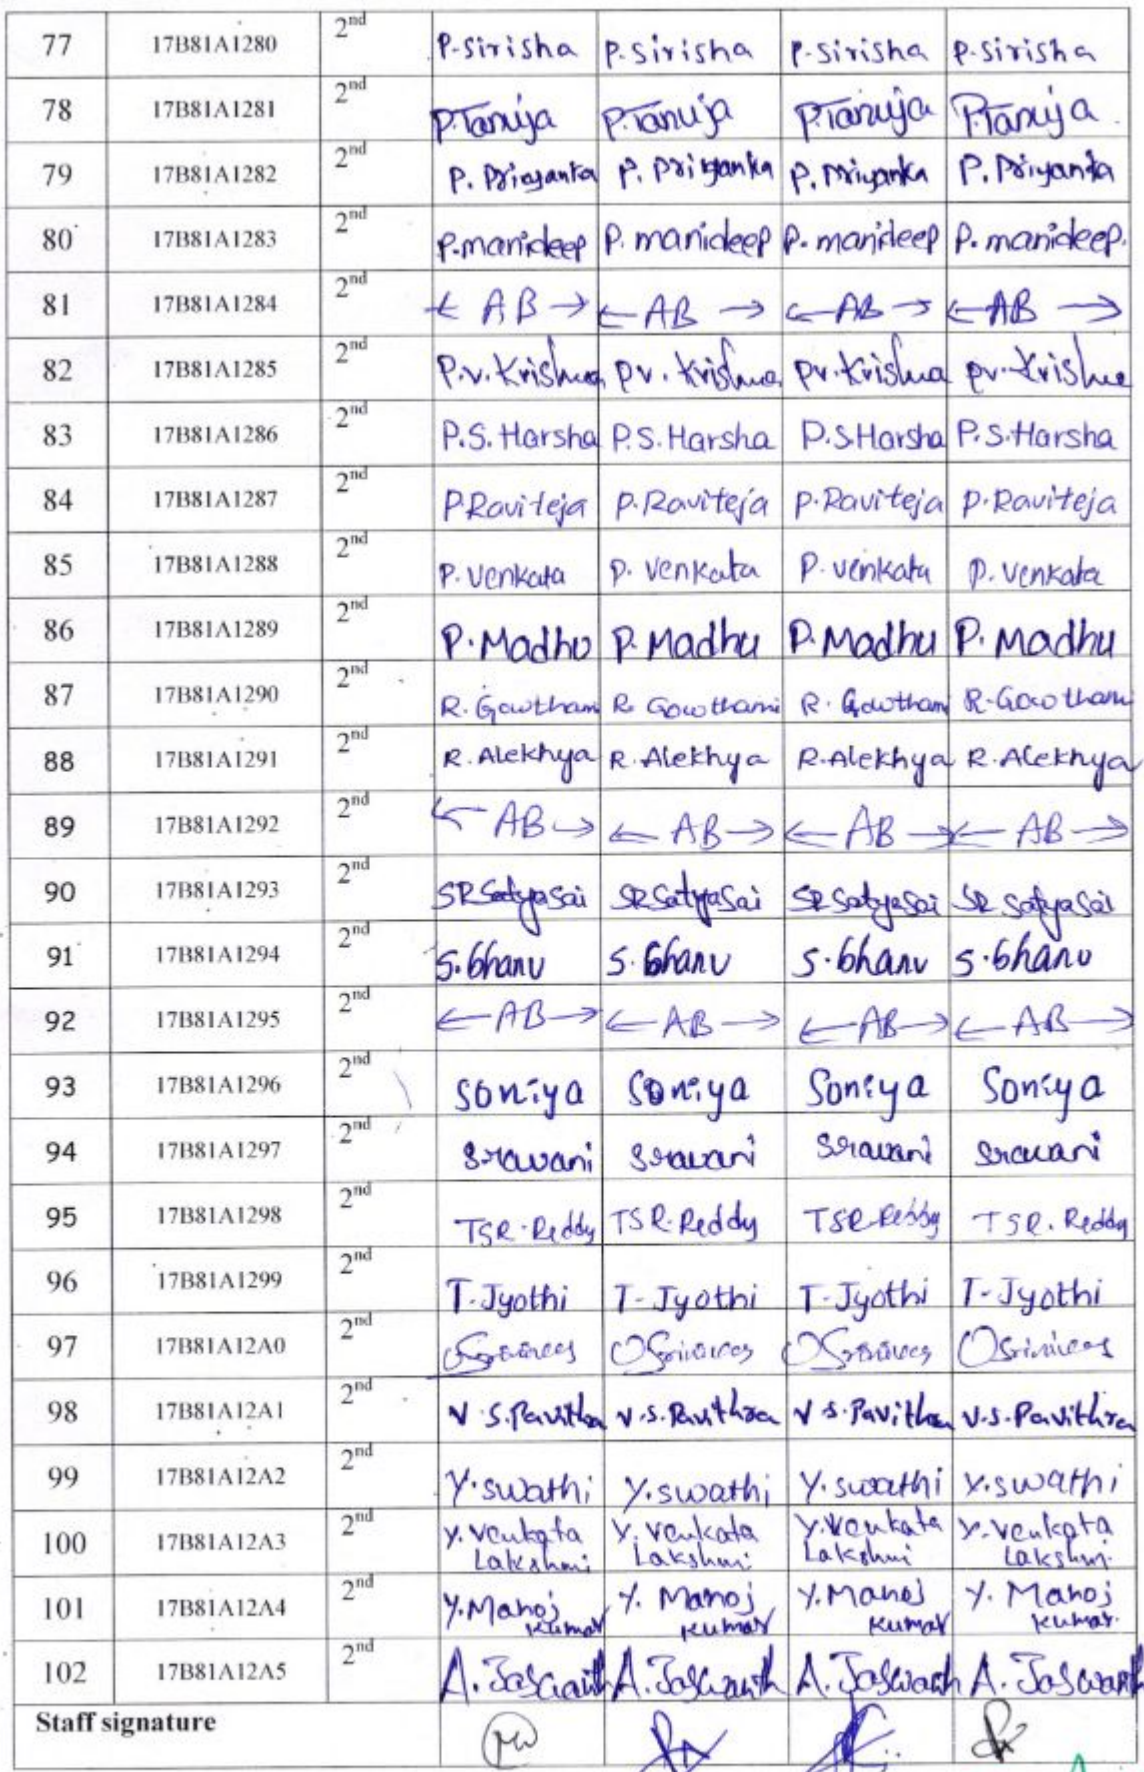 77 17B81A1280 2nd P.Sirisha P.Sirisha P.Sirisha P.Sirisha
78 17B81A1281 2nd P.Tanuja P.Tanuja P.Tanuja P.Tanuja
79 17B81A1282 2nd P. Priyanka P. Priyanka P. Priyanka P. Priyanka
80 17B81A1283 2nd P.manideep P. manideep P. manideep P. manideep.
81 17B81A1284 2nd ← AB → ← AB → ← AB → ← AB →
82 17B81A1285 2nd P.V.Krishna PV.Krishna PV.Krishna PV.Krishna
83 17B81A1286 2nd P.S.Harsha P.S.Harsha P.S.Harsha P.S.Harsha
84 17B81A1287 2nd P.Raviteja P.Raviteja P.Raviteja P.Raviteja
85 17B81A1288 2nd P.Venkata P. Venkata P. Venkata P. Venkata
86 17B81A1289 2nd P.Madhu P. Madhu P. Madhu P. Madhu
87 17B81A1290 2nd R. Gowtham R. Gowthami R. Gowtham R. Gowthami
88 17B81A1291 2nd R.Alekhya R.Alekhya R.Alekhya R.Alekhya
89 17B81A1292 2nd ← AB → ← AB → ← AB → ← AB →
90 17B81A1293 2nd SR SatyaSai SR SatyaSai SR SatyaSai SR SatyaSai
91 17B81A1294 2nd S.bhanu S.bhanu S.bhanu S.bhanu
92 17B81A1295 2nd ← AB → ← AB → ← AB → ← AB →
93 17B81A1296 2nd Soniya Soniya Soniya Soniya
94 17B81A1297 2nd Sravani Sravani Sravani Sravani
95 17B81A1298 2nd TSR.Reddy TSR.Reddy TSR Reddy TSR.Reddy
96 17B81A1299 2nd T.Jyothi T-Jyothi T-Jyothi T-Jyothi
97 17B81A12A0 2nd
98 17B81A12A1 2nd V.S.Pavithra V.S.Pavithra V.S.Pavithra V.S.Pavithra
99 17B81A12A2 2nd Y.swathi Y.swathi Y.swathi Y.swathi
100 17B81A12A3 2nd Y.Venkata Lakshmi Y.Venkata Lakshmi Y.Venkata Lakshmi Y.Venkata Lakshmi
101 17B81A12A4 2nd Y.Manoj kumar Y. Manoj kumar Y.Manoj kumar Y. Manoj kumar
102 17B81A12A5 2nd A.Jaswanth A.Jaswanth A.Jaswanth A.Jaswanth
Staff signature